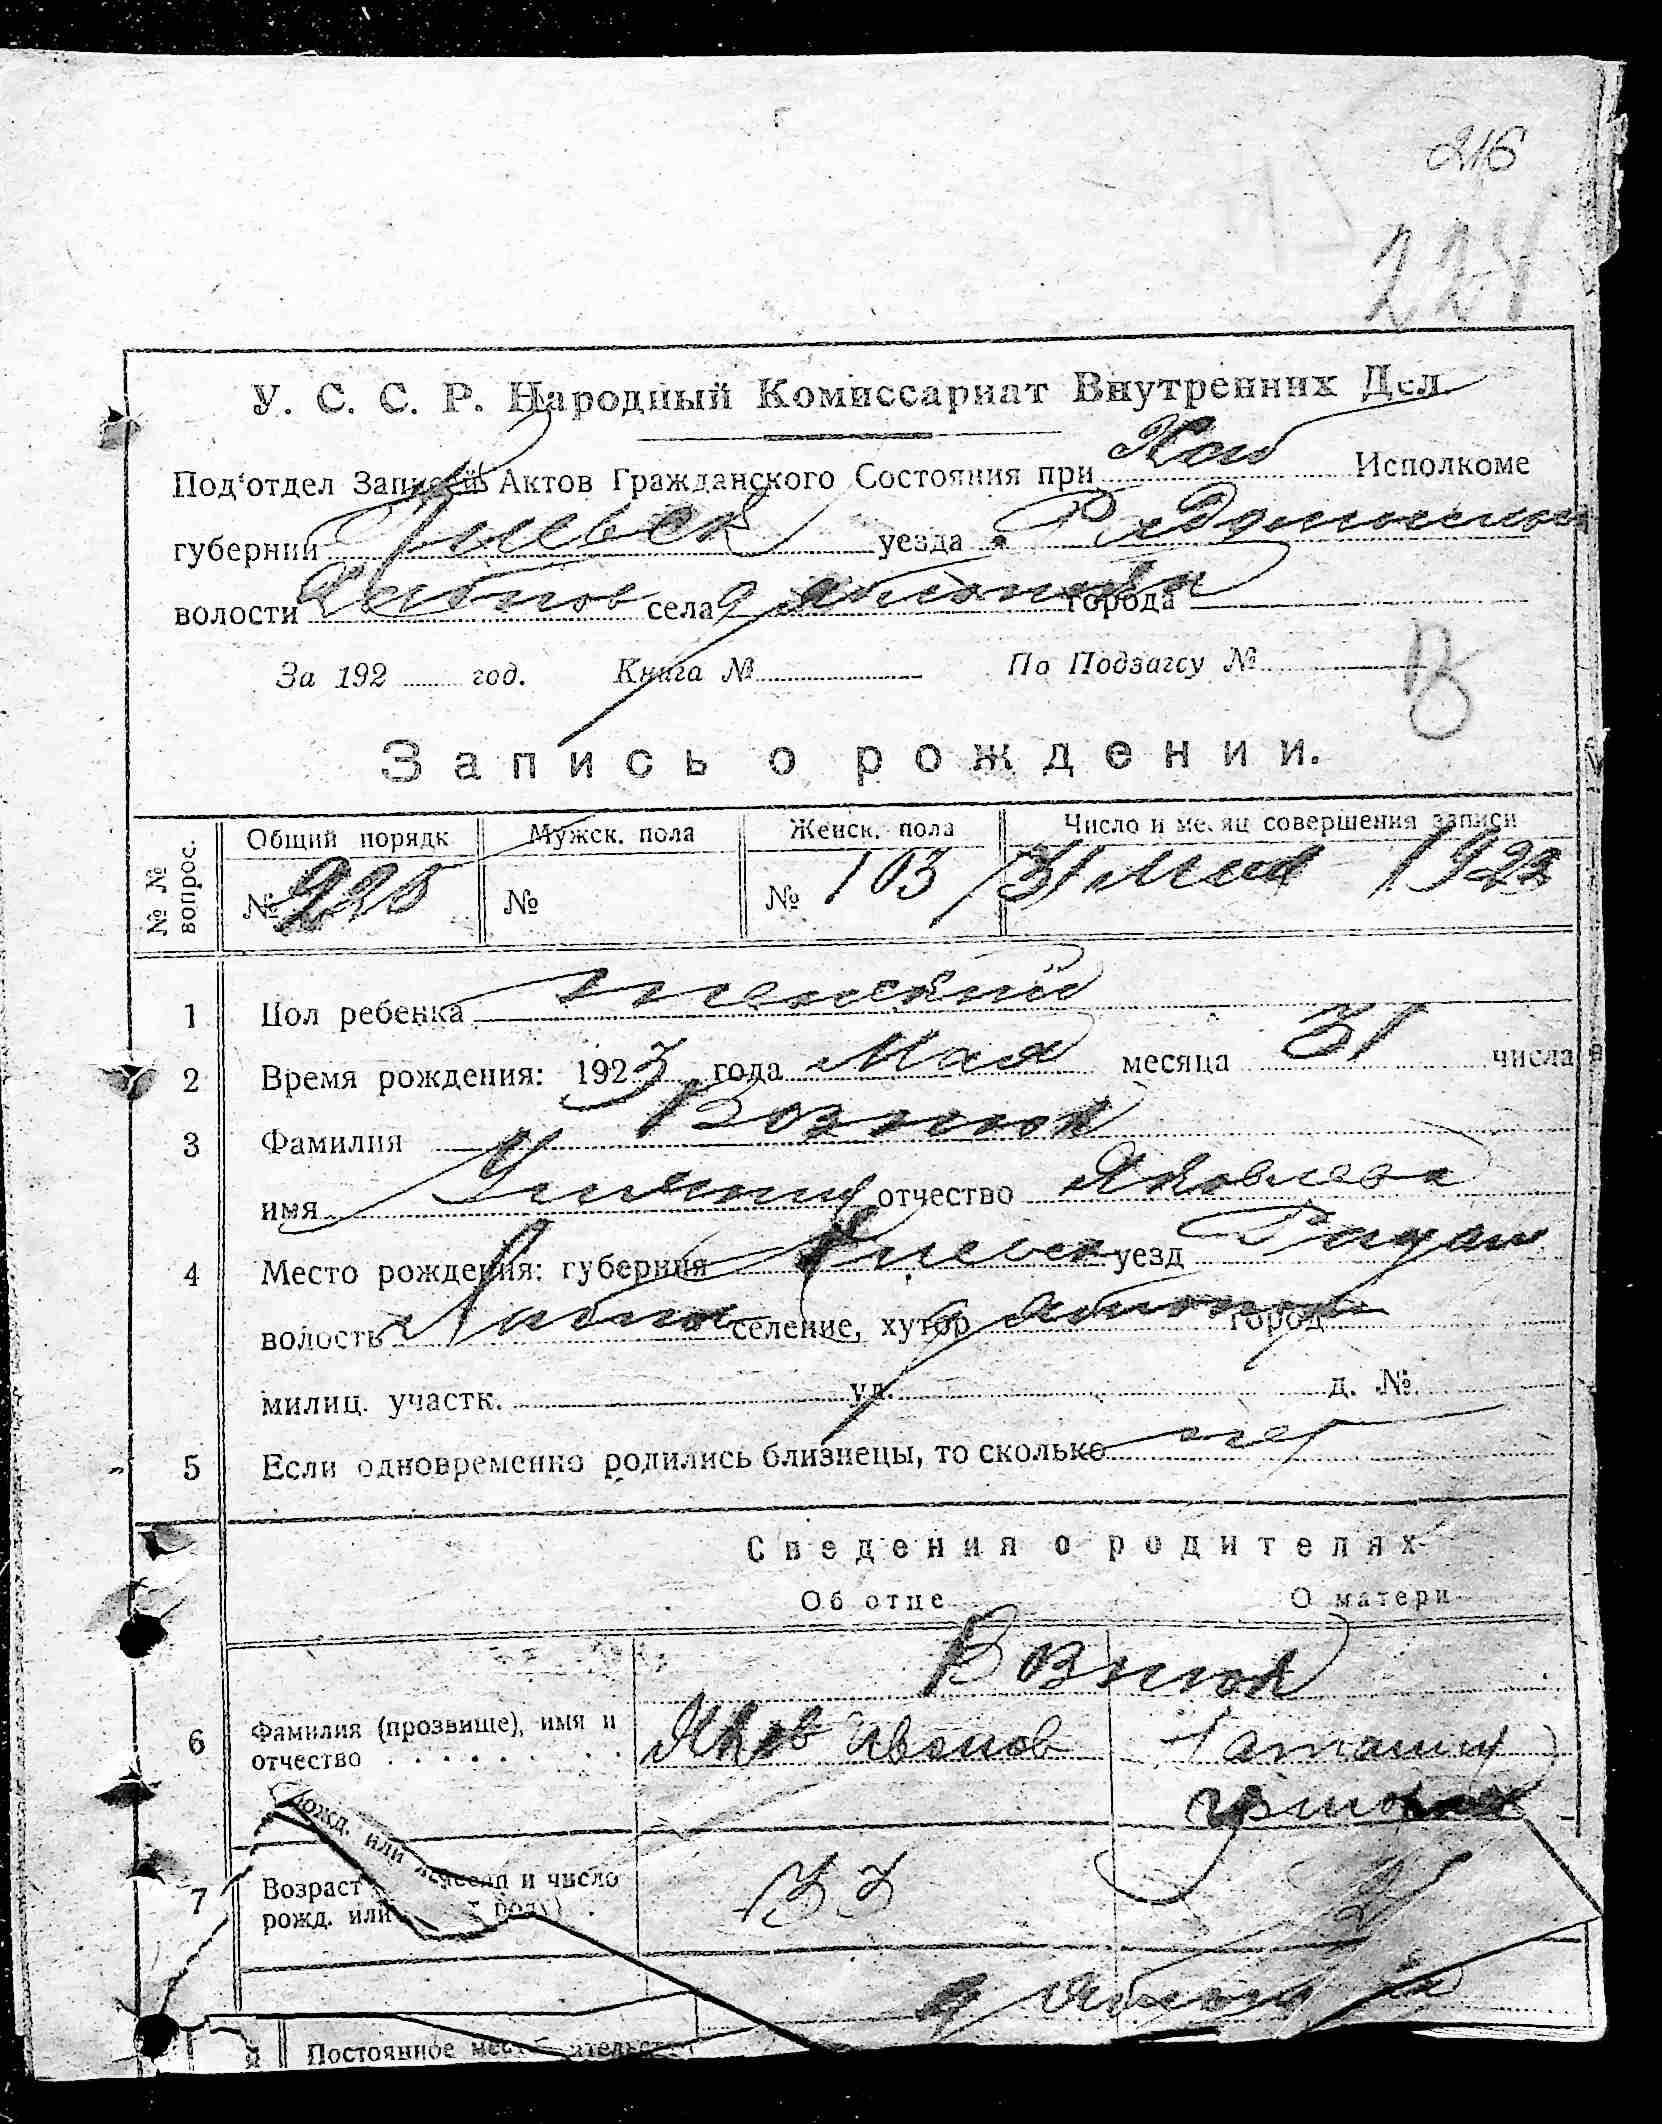 216
228
У. С. С. Р. Народный Комиссариат Внутренних Дел
Под‘отдел Записей Актов Гражданского Состояния при Хаб Исполкоме
губернии Киевск уезда Радомысльск
волости Хабнов села города
За 192 год. Книга № По Подзагсу №
Запись о рождении.
№ № вопрос. Общий порядк Мужск. пола Женск. пола Число и месяц совершения записи
№ 228 № № 103 31 Мая 1922
1 Пол ребенка женский
2 Время рождения: 1923 года Мая месяца 31 числа
3 Фамилия Вознюк
имя отчество Яковлева
4 Место рождения: губерния Киевск уезд
волость селение, хутор город
милиц. участк. ул. д. №
5 Если одновременно родились близнецы, то сколько нет
Сведения о родителях
Об отце О матери
Вознюк
6 Фамилия (прозвище), имя и Яков Иванов
отчество
рожд. или месяц и число
7 Возраст 33
рожд. или году)
Постоянное мест